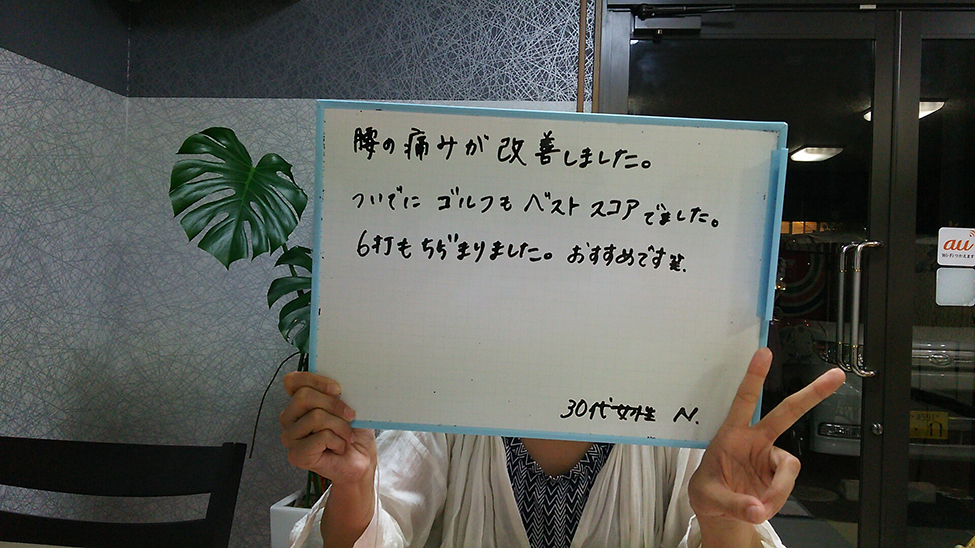 腰の痛みが改善しました。
ついでに ゴルフも ベスト スコア でました。
6打も ちぢまりました。 おすすめです
30代女性 N.
au